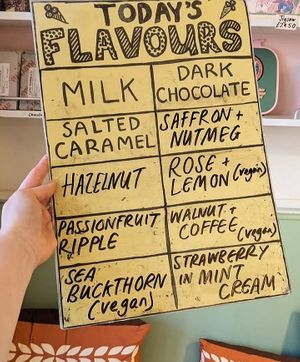 TODAY'S
FLAVOURS
MILK
DARK
CHOCOLATE
SALTED
CARAMEL
SAFFRON +
NUTMEG
HAZELNUT
ROSE +
LEMON (vegan)
PASSIONFRUIT
RIPPLE
WALNUT +
COFFEE (vegan)
SEA
BUCKTHORN
(vegan)
STRAWBERRY
IN MINT
CREAM